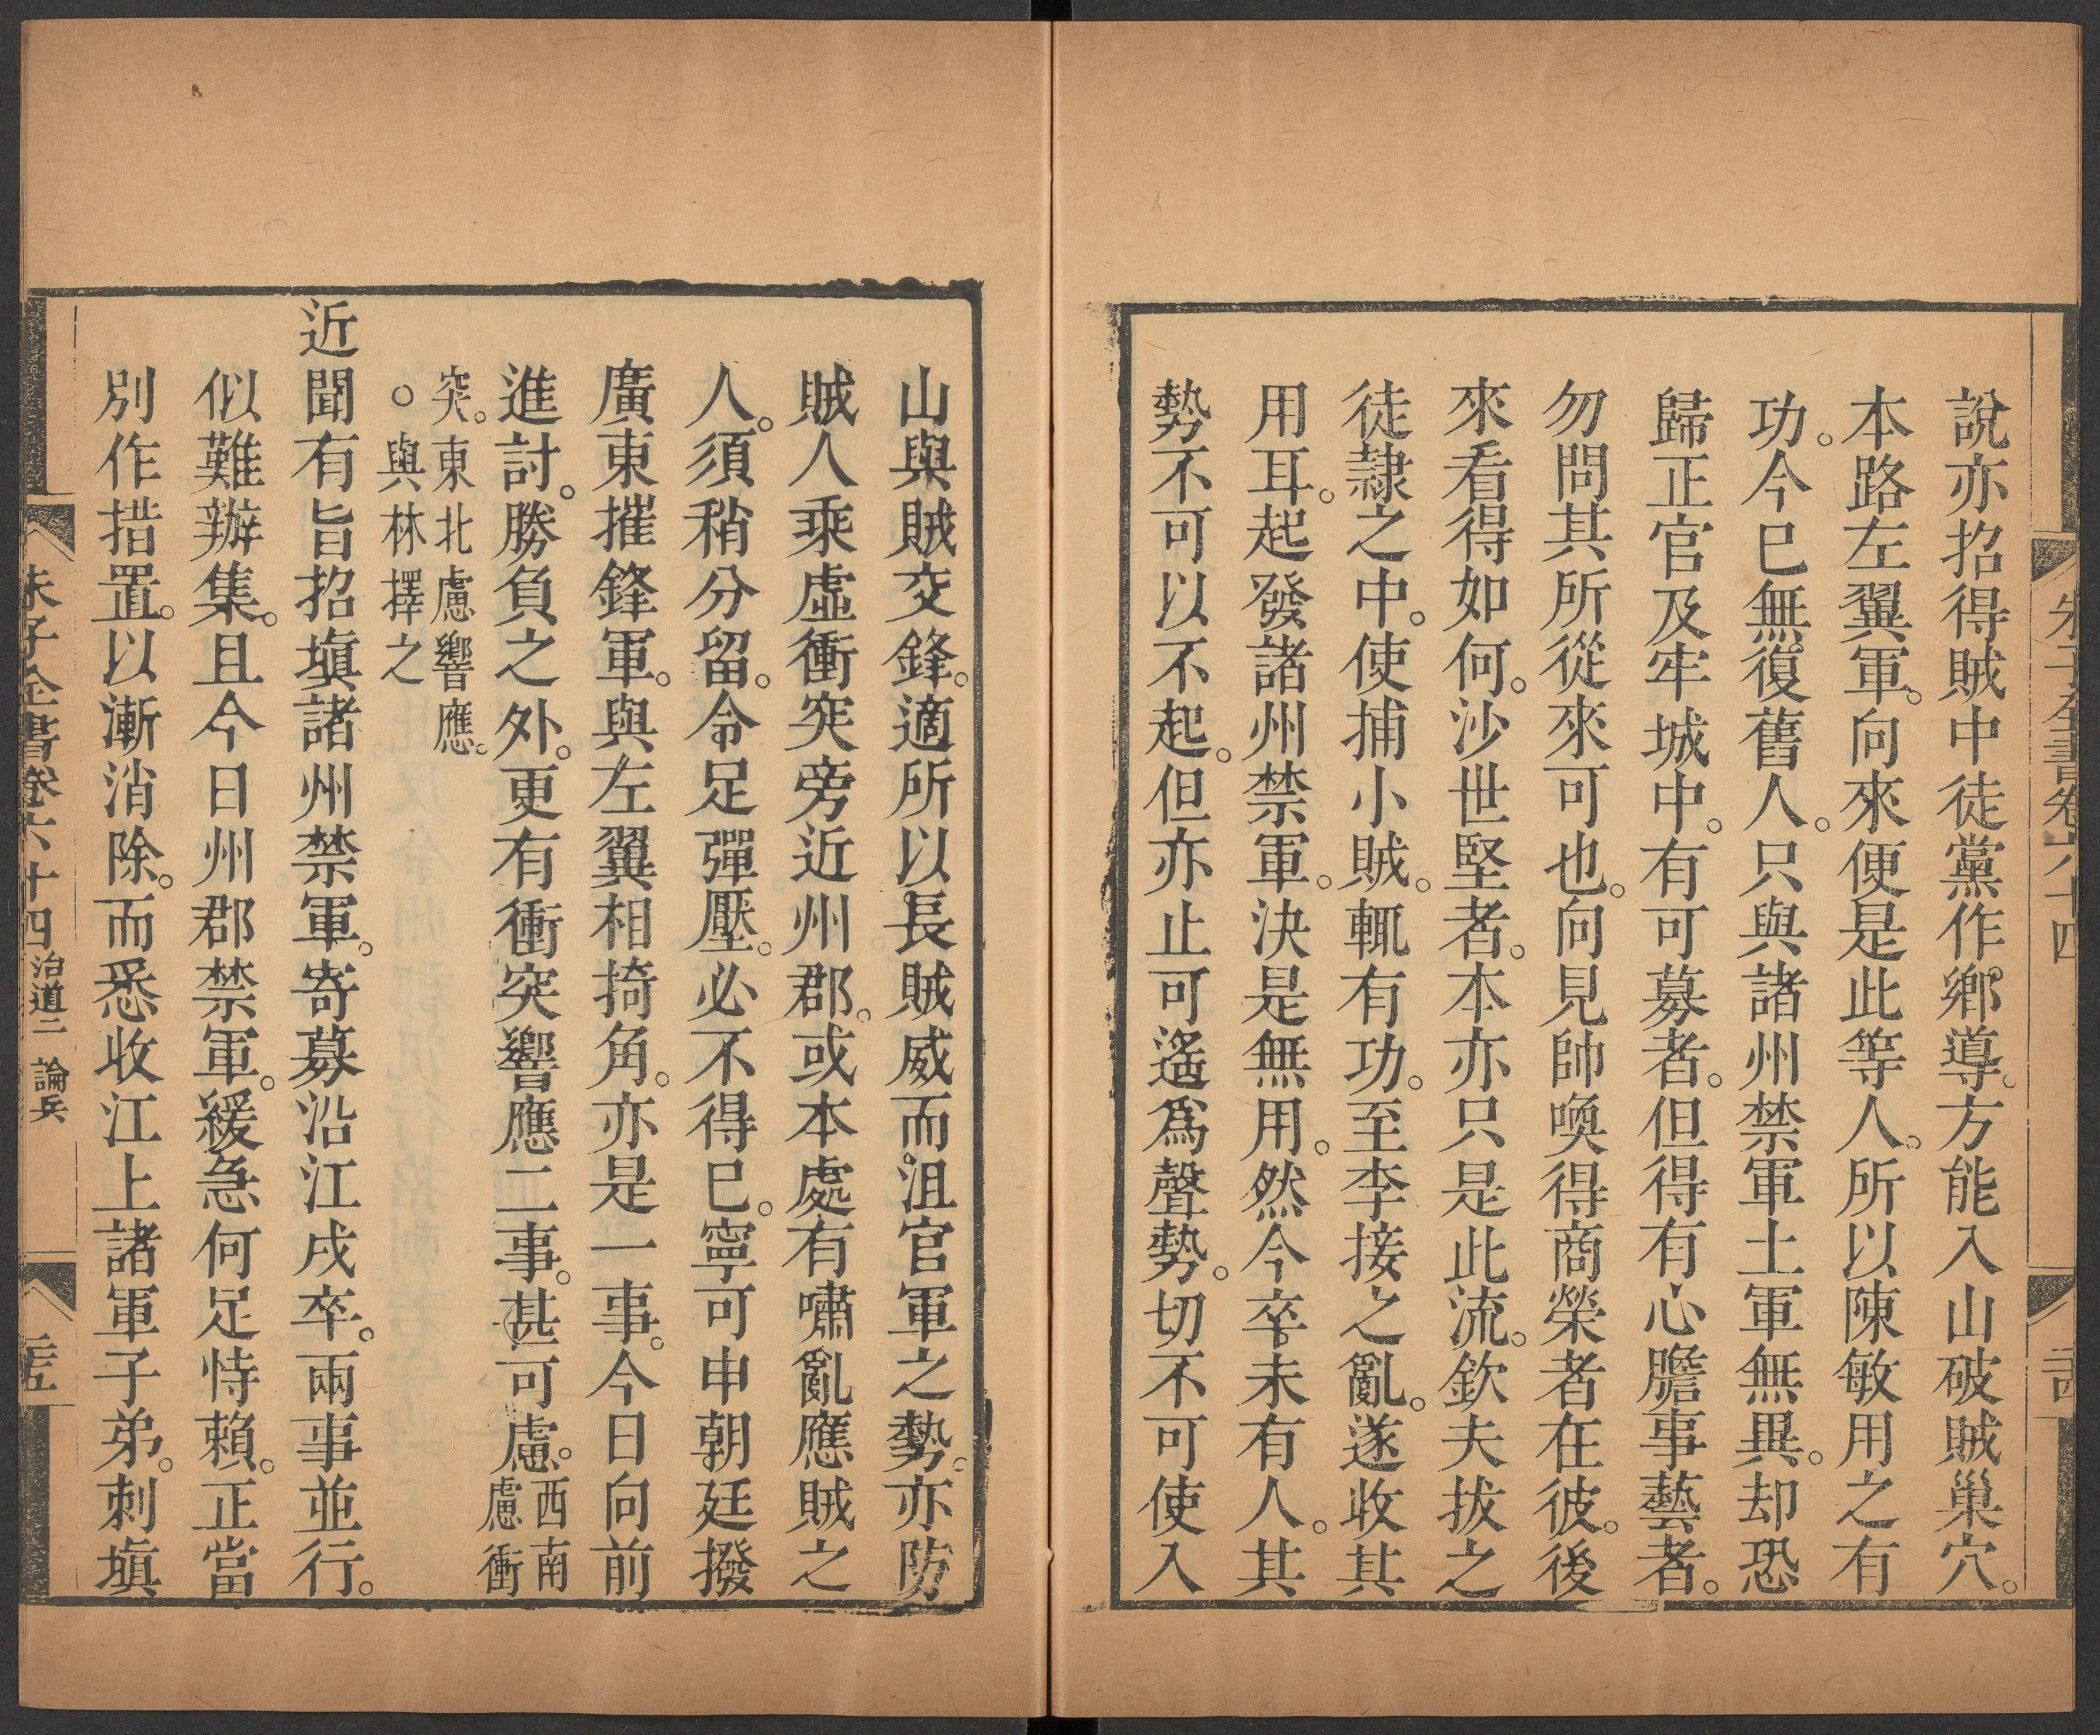 說亦招得賊中徒黨作鄉導。方能入山破賊巢穴。
本路左翼軍。向來便是此等人。所以陳敏用之有
功。今已無復舊人。只與諸州禁軍土軍無異。却恐
歸正官及牢城中。有可募者。但得有心膽事藝者。
勿問其所從來可也。向見帥喚得商榮者在彼。後
來看得如何。沙世堅者。本亦只是此流。欽夫拔之
徒隸之中。使捕小賊。輒有功。至李接之亂。遂收其
用耳。起發諸州禁軍。決是無用。然今卒未有人。其
勢不可以不起。但亦止可遙爲聲勢。切不可使入
山與賊交鋒。適所以長賊威而沮官軍之勢。亦防
賊人乘虛衝突旁近州郡。或本處有嘯亂應賊之
人。須稍分留。令足彈壓。必不得已。寧可申朝廷撥
廣東摧鋒軍。與左翼相掎角。亦是一事。今日向前
進討。勝負之外。更有衝突響應二事。甚可慮。西南慮衝
突。東北慮響應。
。與林擇之
近聞有旨招塡諸州禁軍。寄募沿江戍卒。兩事並行。
似難辦集。且今日州郡禁軍。緩急何足恃賴。正當
別作措置。以漸消除。而悉收江上諸軍子弟。刺塡
朱子全書卷六十四 治道二 論兵